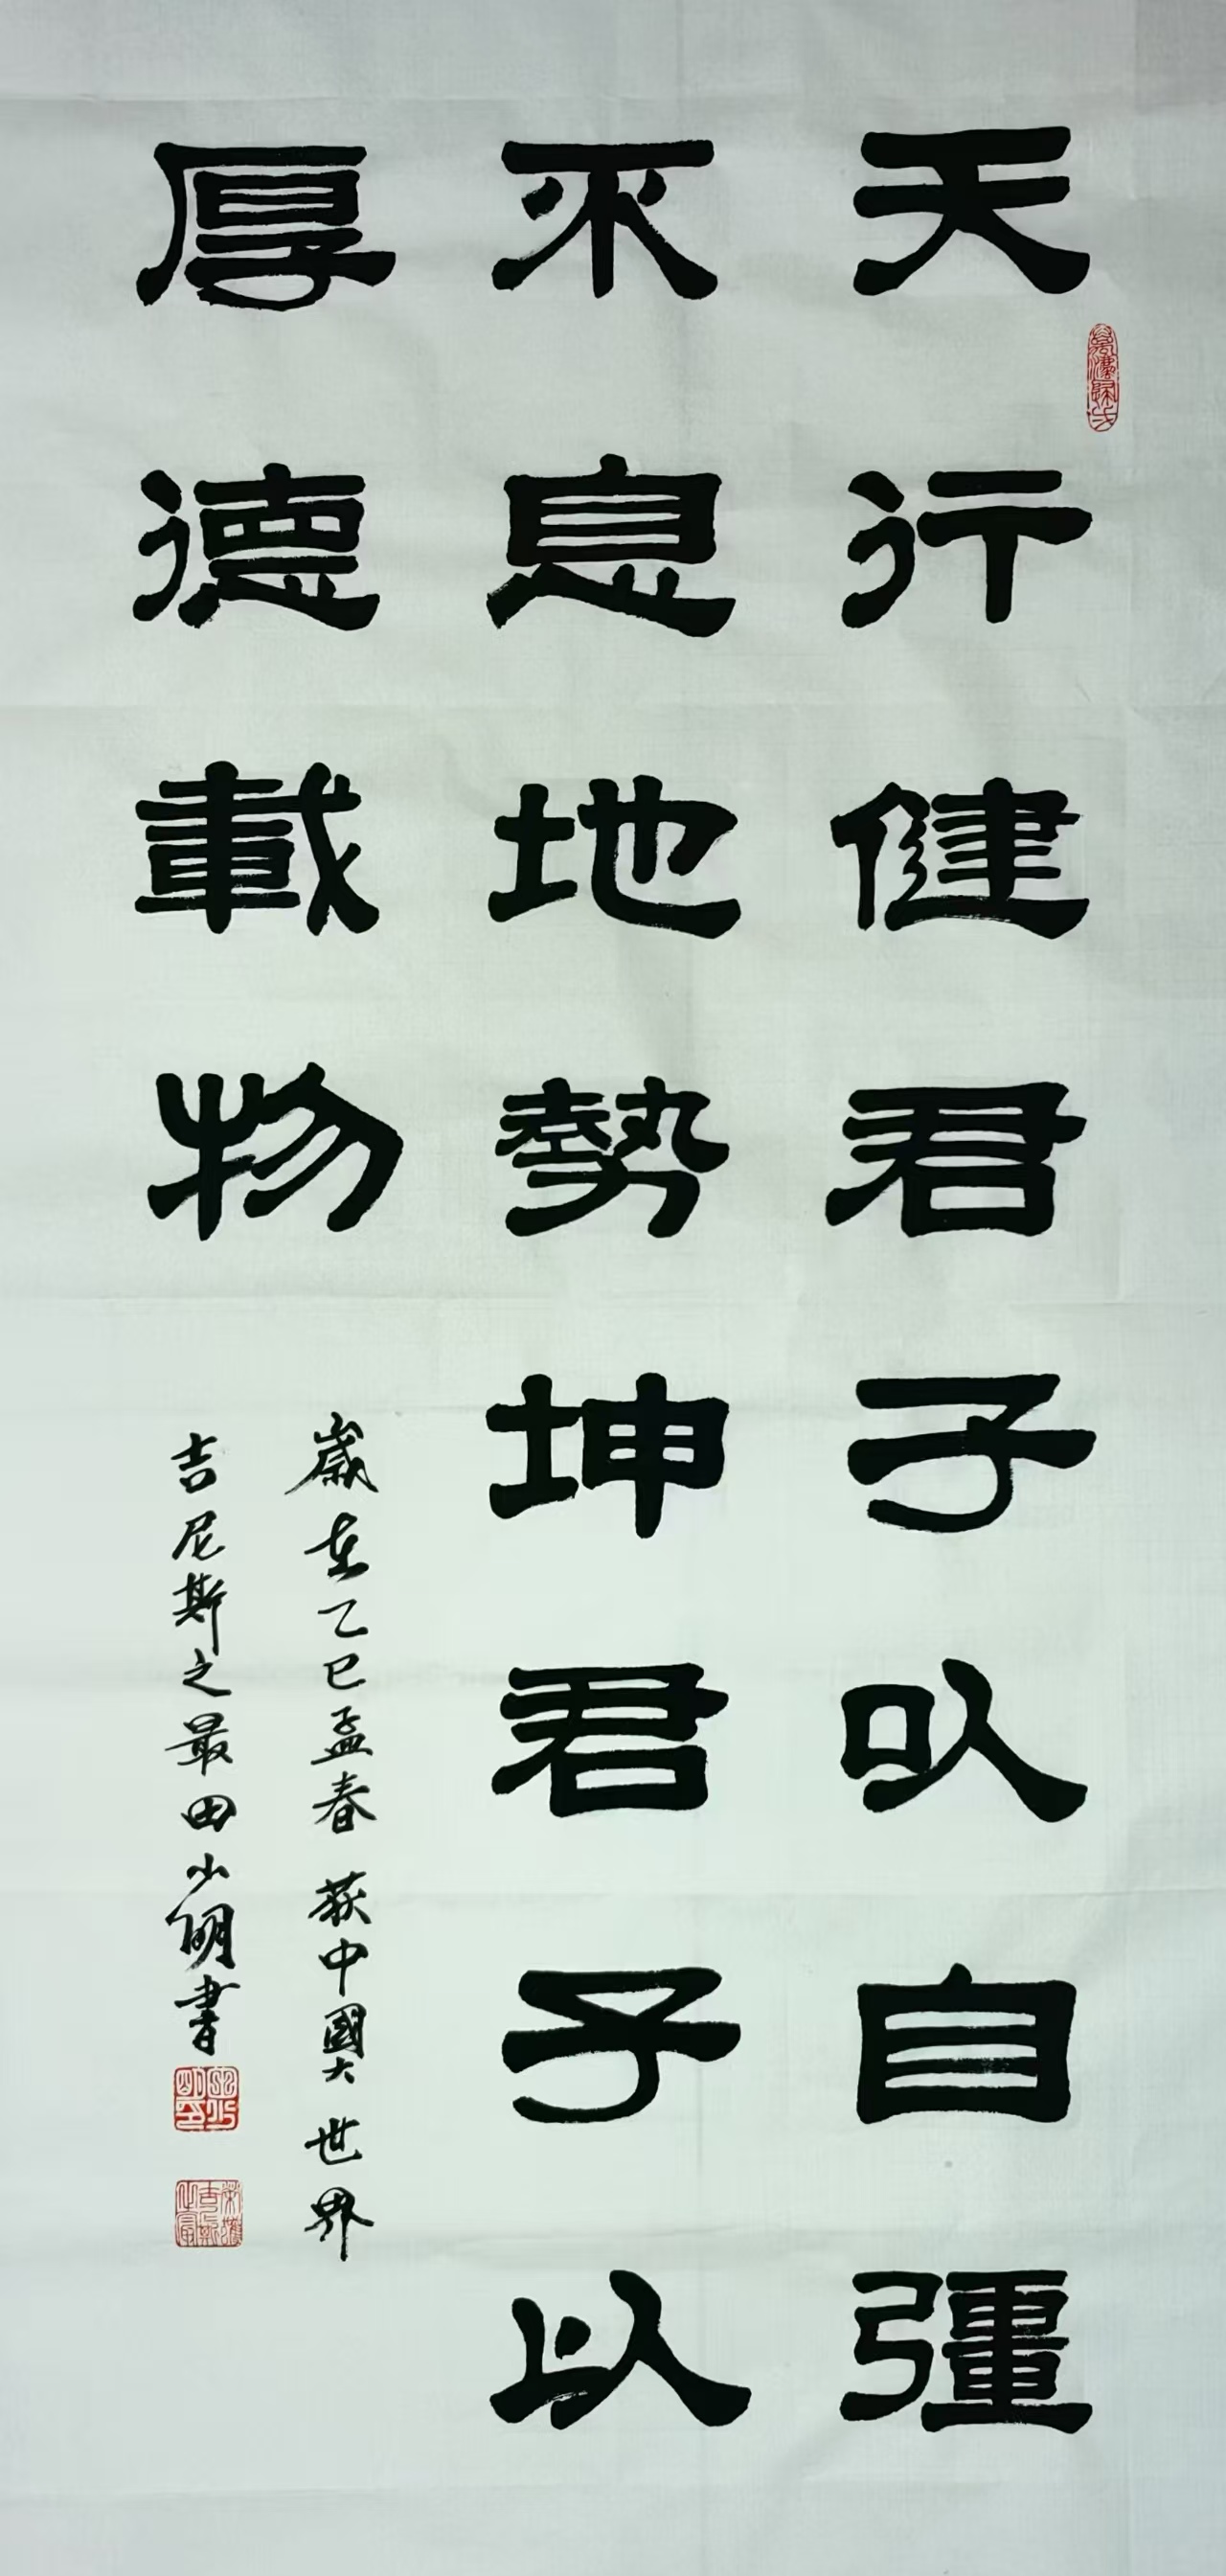 天行健君子以自彊
不息地勢坤君子以
厚德載物
歲在乙巳孟春 荻中國大世界
吉尼斯之最田少明書